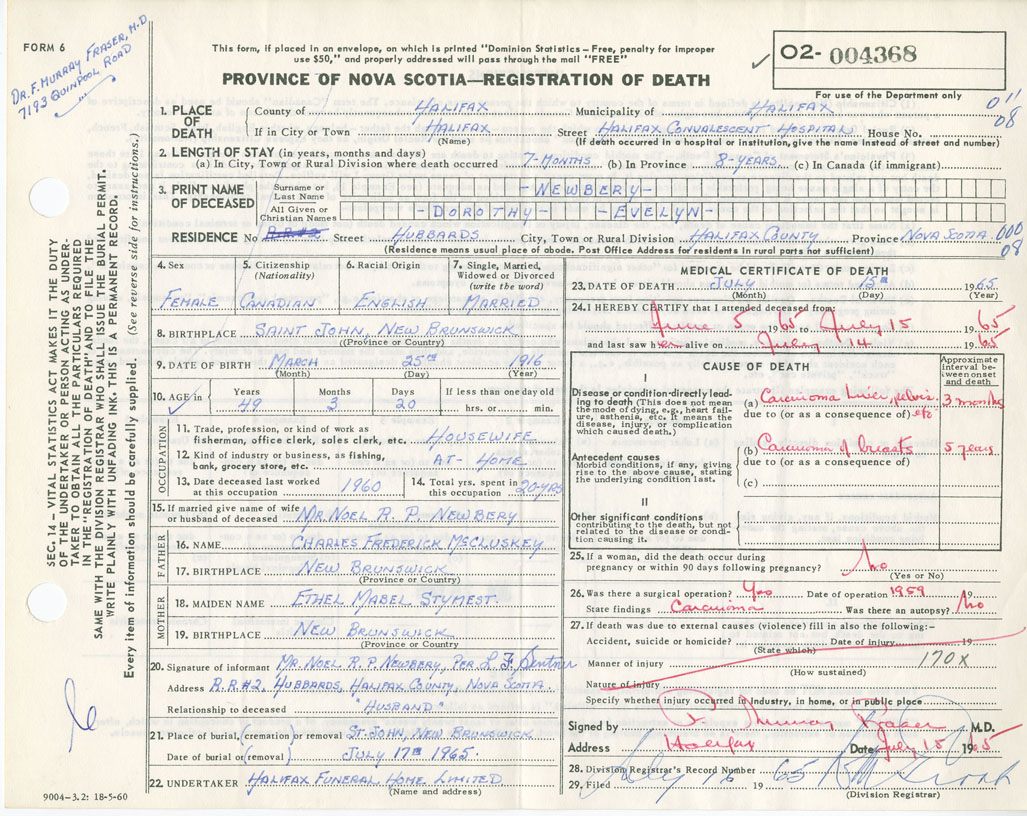 FORM 6
DR. F. MURRAY FRASER, M.D.
7193 QUINPOOL ROAD
This form, if placed in an envelope, on which is printed "Dominion Statistics – Free, penalty for improper
use $50," and properly addressed will pass through the mail "FREE"
PROVINCE OF NOVA SCOTIA—REGISTRATION OF DEATH
✓ O2- 004368
For use of the Department only
011
08
1. PLACE OF DEATH County of HALIFAX Municipality of HALIFAX
If in City or Town HALIFAX Street HALIFAX CONVALESCENT HOSPITAL House No.
(Name) (If death occurred in a hospital or institution, give the name instead of street and number)
2. LENGTH OF STAY (in years, months and days)
(a) In City, Town or Rural Division where death occurred 7-MONTHS (b) In Province 8-YEARS (c) In Canada (if immigrant)
3. PRINT NAME OF DECEASED Surname or Last Name -NEWBERY-
All Given or Christian Names -DOROTHY- -EVELYN-
RESIDENCE No R.R#2 Street HUBBARDS City, Town or Rural Division HALIFAX COUNTY Province NOVA SCOTIA 000
08
(Residence means usual place of abode. Post Office Address for residents in rural parts not sufficient)
4. Sex 5. Citizenship (Nationality) 6. Racial Origin 7. Single, Married, Widowed or Divorced (write the word)
FEMALE CANADIAN ENGLISH MARRIED
8. BIRTHPLACE SAINT JOHN, NEW BRUNSWICK
(Province or Country)
9. DATE OF BIRTH MARCH 25TH 1916
(Month) (Day) (Year)
10. AGE in Years Months Days If less than one day old
49 3 20 hrs. or min.
OCCUPATION
11. Trade, profession, or kind of work as fisherman, office clerk, sales clerk, etc. HOUSEWIFE
12. Kind of industry or business, as fishing, bank, grocery store, etc. AT-HOME
13. Date deceased last worked at this occupation 1960 14. Total yrs. spent in this occupation 20-YRS
15. If married give name of wife or husband of deceased MR NOEL R. P. NEWBERY
FATHER
16. NAME CHARLES FREDERICK MCCLUSKEY
17. BIRTHPLACE NEW BRUNSWICK
(Province or Country)
MOTHER
18. MAIDEN NAME ETHEL MABEL STYMEST.
19. BIRTHPLACE NEW BRUNSWICK
(Province or Country
20. Signature of informant MR. NOEL R.P. NEWBERY, PER L. F.
Address R.R#2, HUBBARDS, HALIFAX COUNTY, NOVA SCOTIA.
Relationship to deceased "HUSBAND"
21. Place of burial, (cremation or removal ST. JOHN, NEW BRUNSWICK
Date of burial (or removal) JULY 17TH 1965.
22. UNDERTAKER HALIFAX FUNERAL HOME LIMITED
(Name and address)
9004-3.2: 18-5-60
MEDICAL CERTIFICATE OF DEATH
23. DATE OF DEATH JULY 15TH 1965
(Month) (Day) (Year)
24. I HEREBY CERTIFY that I attended deceased from:
June 5 1965 to July 15 1965
and last saw her alive on July 14 1965
CAUSE OF DEATH
Approximate Interval between onset and death
I
Disease or condition directly leading to death (This does not mean the mode of dying, e.g., heart failure, asthenia, etc. It means the disease, injury, or complication which caused death.)
(a) Carcinoma liver, pelvis, etc 3 months
due to (or as a consequence of)
Antecedent causes
Morbid conditions, if any, giving rise to the above cause, stating the underlying condition last.
(b) Carcinoma of breasts 5 years
due to (or as a consequence of)
(c)
II
Other significant conditions
contributing to the death, but not related to the disease or condition causing it.
25. If a woman, did the death occur during pregnancy or within 90 days following pregnancy? No
(Yes or No)
26. Was there a surgical operation? Yes Date of operation 1959 19
State findings Carcinoma Was there an autopsy? No
27. If death was due to external causes (violence) fill in also the following:-
Accident, suicide or homicide? Date of injury 19
(State which)
Manner of injury 170X
(How sustained)
Nature of injury
Specify whether injury occurred in Industry, in home, or in public place
Signed by F. Murray Fraser M.D.
Address Halifax Date July 15 1965
28. Division Registrar's Record Number
29. Filed July 16 19 65
(Division Registrar)
SEC. 14 – VITAL STATISTICS ACT MAKES IT THE DUTY
OF THE UNDERTAKER OR PERSON ACTING AS UNDER-
TAKER TO OBTAIN ALL THE PARTICULARS REQUIRED
IN THE "REGISTRATION OF DEATH" AND TO FILE THE
SAME WITH THE DIVISION REGISTRAR WHO SHALL ISSUE THE BURIAL PERMIT.
WRITE PLAINLY WITH UNFADING INK. THIS IS A PERMANENT RECORD.
Every item of information should be carefully supplied. (See reverse side for instructions.)